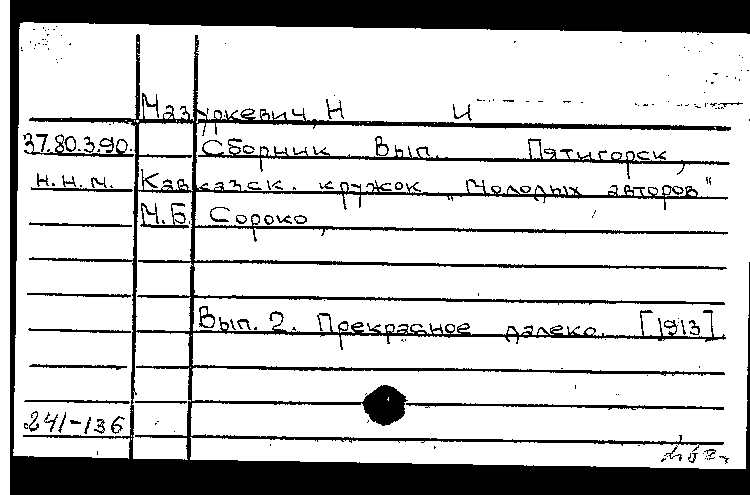 Мазуркевич, Н И
37.80.3.90. Сборник Вып. Пятигорск,
н.н.м. Кавказск. кружок „Молодых авторов"
М.Б. Сороко,
Вып. 2. Прекрасное далеко. [1913]
241-136